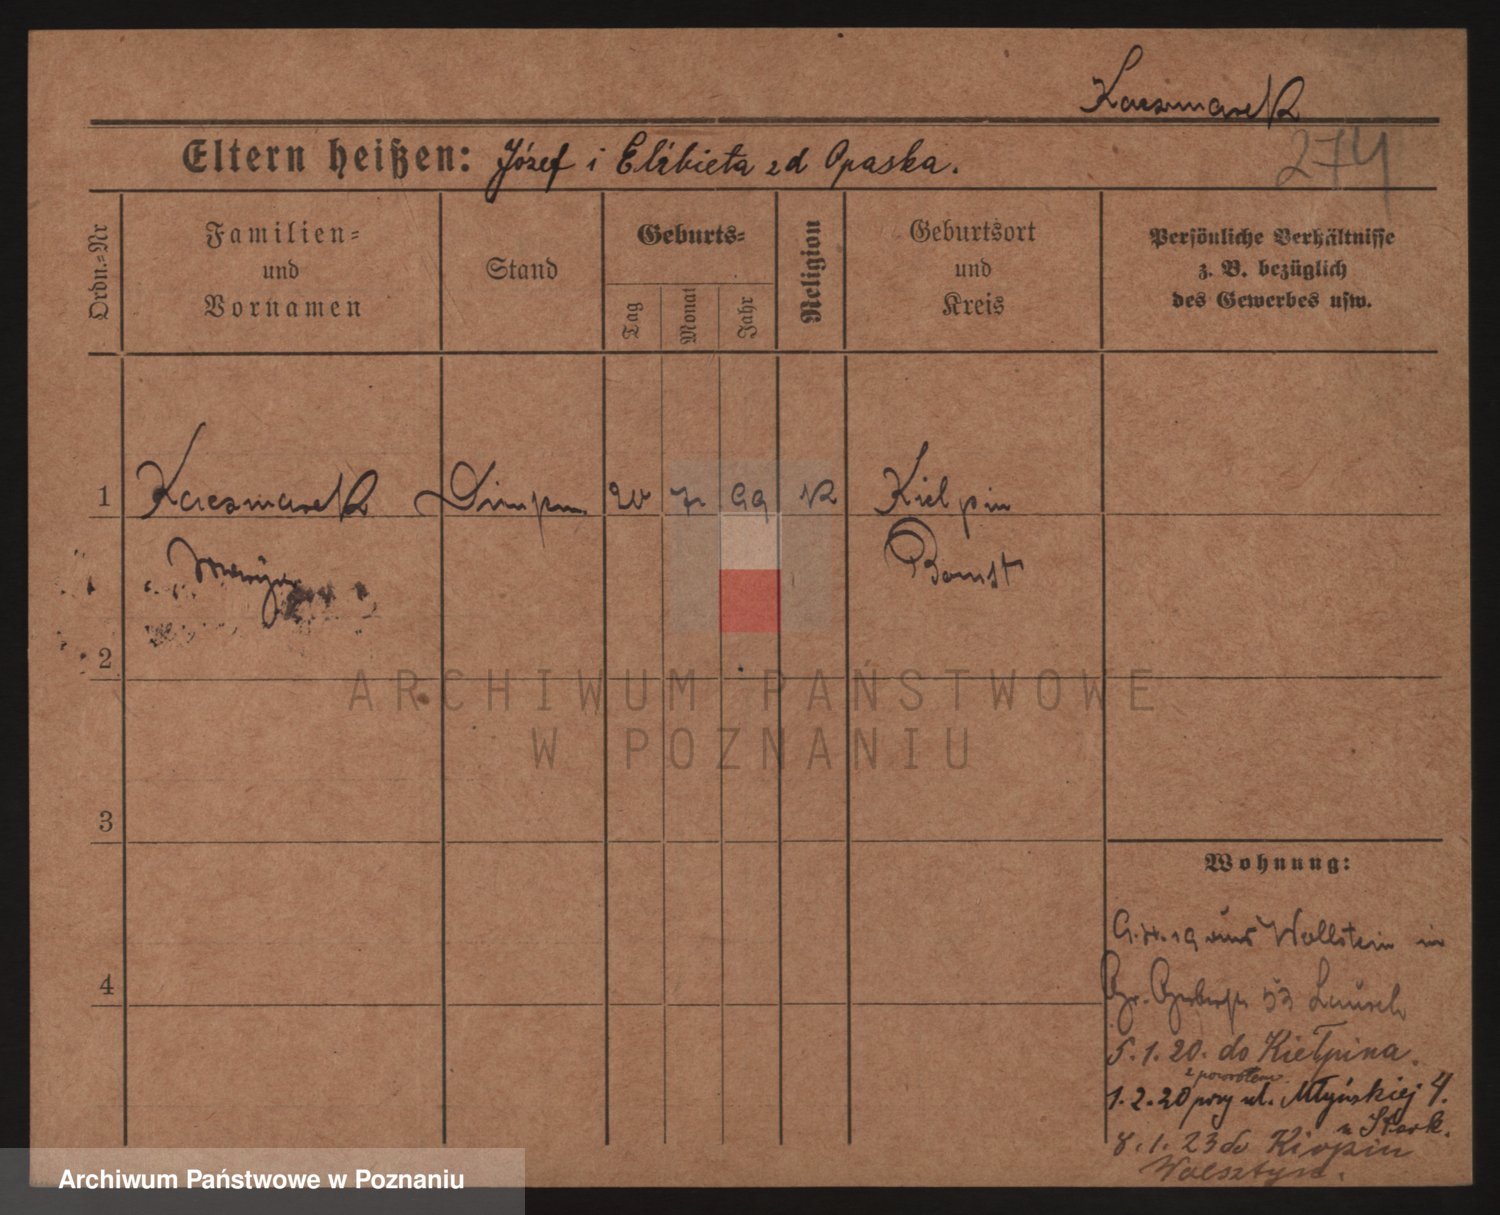 Kaczmarek
274
Eltern heißen: Józef i Elżbieta zd Opaska.
Ordn.=Nr
Familien=
und
Vornamen
Stand
Geburts=
Tag
Monat
Jahr
Religion
Geburtsort
und
Kreis
Persönliche Verhältnisse
z. B. bezüglich
des Gewerbes usw.
1
Kaczmarek
20
7
99
K
Kielpin
Bomst
2
3
4
Wohnung:
aus Wollstein in
Gr. Gerberstr 53
5.1.20. do Kiełpina.
z powrotem
1.2.20 przy ul. Młyńskiej 4.
u Stark.
8.1.23 do Kiełpin
Wolsztyn.
ARCHIWUM PAŃSTWOWE
W POZNANIU
Archiwum Państwowe w Poznaniu